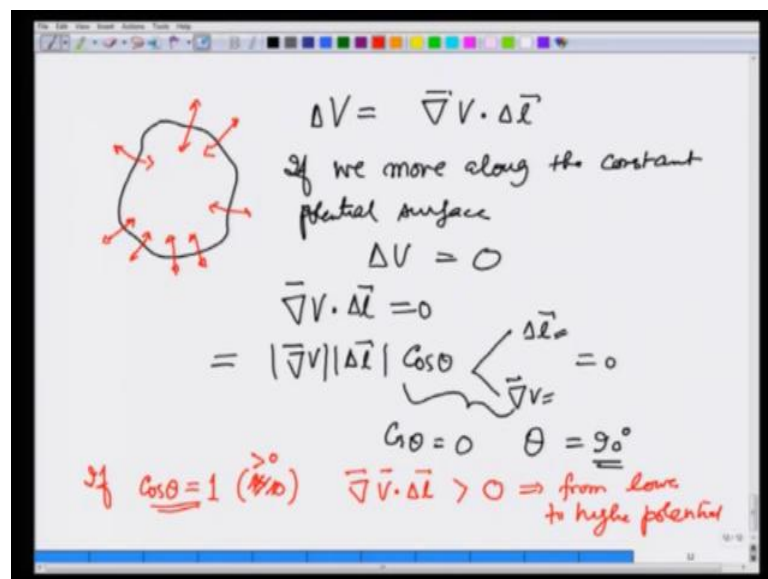 File Edit View Insert Actions Tools Help
ΔV = ∇⃗V · Δl⃗
If we move along the constant
potential surface
ΔV = 0
∇⃗V · Δl⃗ = 0
= |∇⃗V||Δl⃗| Cosθ < Δl⃗= ∇⃗V= = 0
Cosθ = 0 θ = 90°
If Cosθ = 1 (>0) ∇⃗V⃗ · Δl⃗ > 0 ⇒ from lower
to highe potential